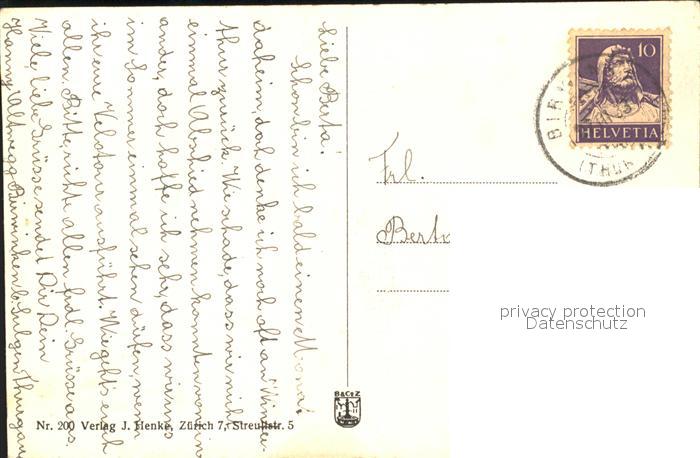 Liebe Berta!
Schon bin ich bald einen Monat
daheim, doch denke ich noch oft an Winter-
thur zurück. Wie schade, dass wir nicht
einmal Abschied nehmen konnten von ein-
ander, doch hoffe ich sehr, dass wir uns
im Sommer einmal sehen dürfen, wenn
ihr eure Velotour ausführt. Wie geht's euch
allen. Bitte richte allen frdl. Grüsse aus.
Viele, liebe Grüsse sendet Dir Dein
Hanny Altwegg, b. Sulgen, Thurgau
Frl.
Bert
10
HELVETIA
BIR
(THUR
privacy protection
Datenschutz
B&CoZ
Nr. 200 Verlag J. Henke, Zürich 7, Streulistr. 5